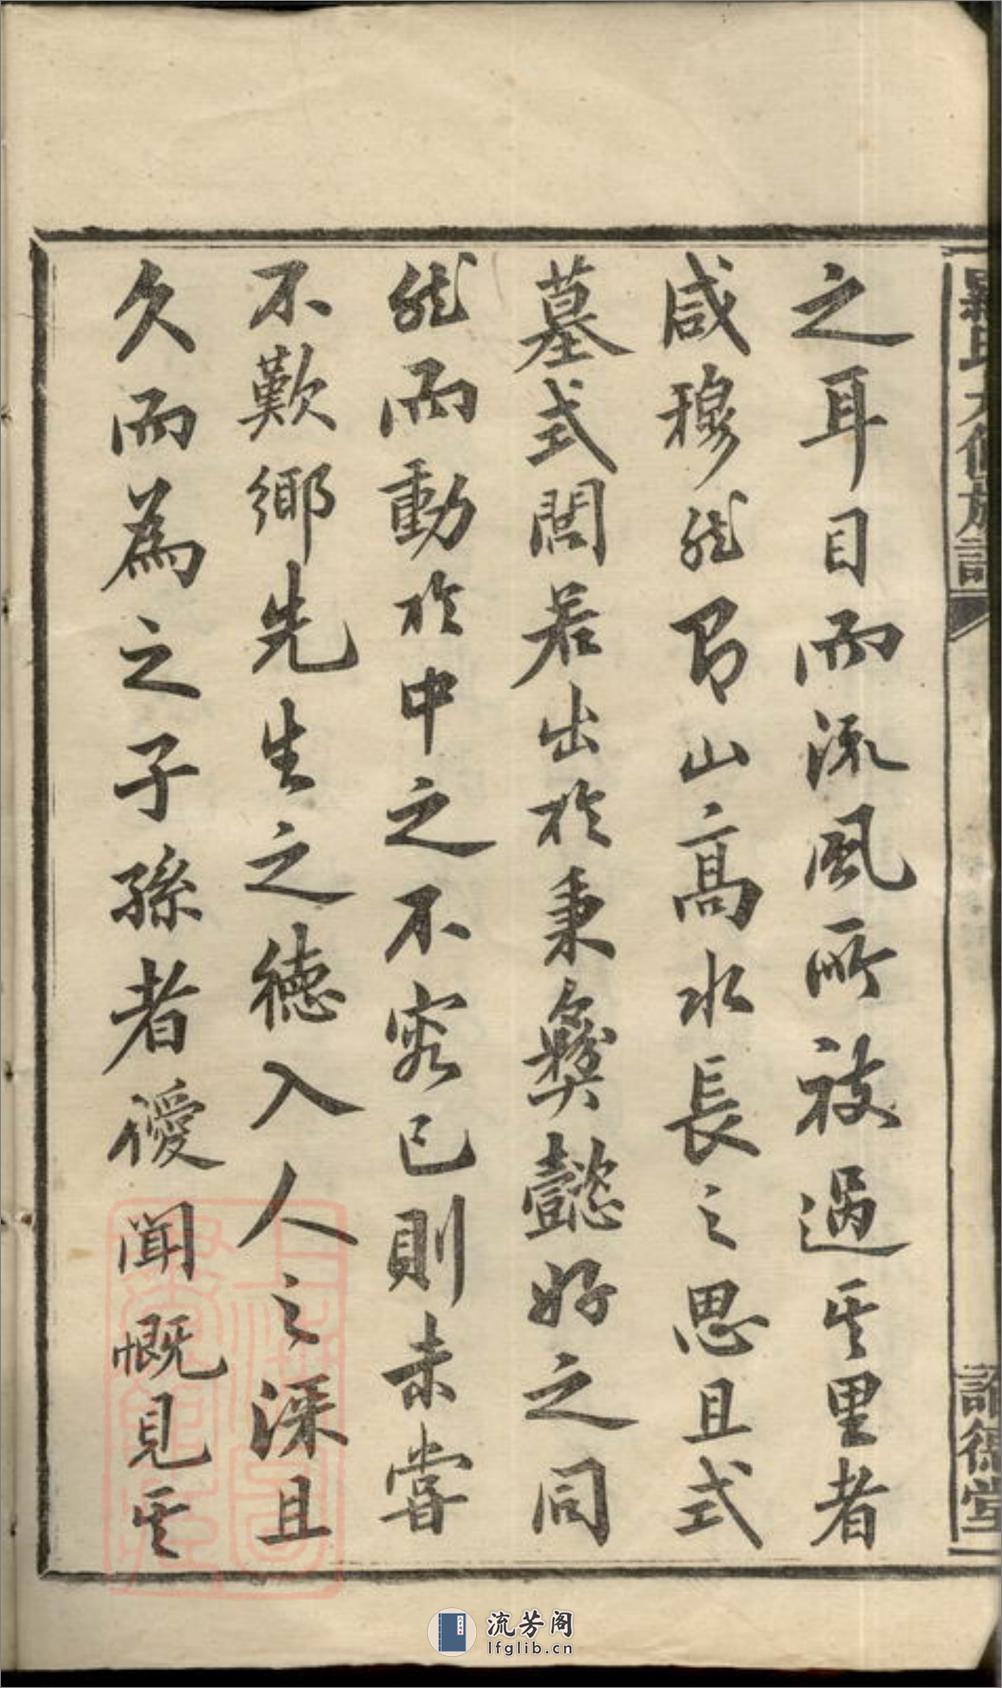 之耳目而流風所被過其里者
咸穆然有山高水長之思且式
墓式閭若出於秉彝懿好之同
然而動於中之不容已則未嘗
不歎鄉先生之德入人之深且
久而為之子孫者僾聞慨見其
羅氏大修族譜
德堂
流芳阁
lfglib.cn